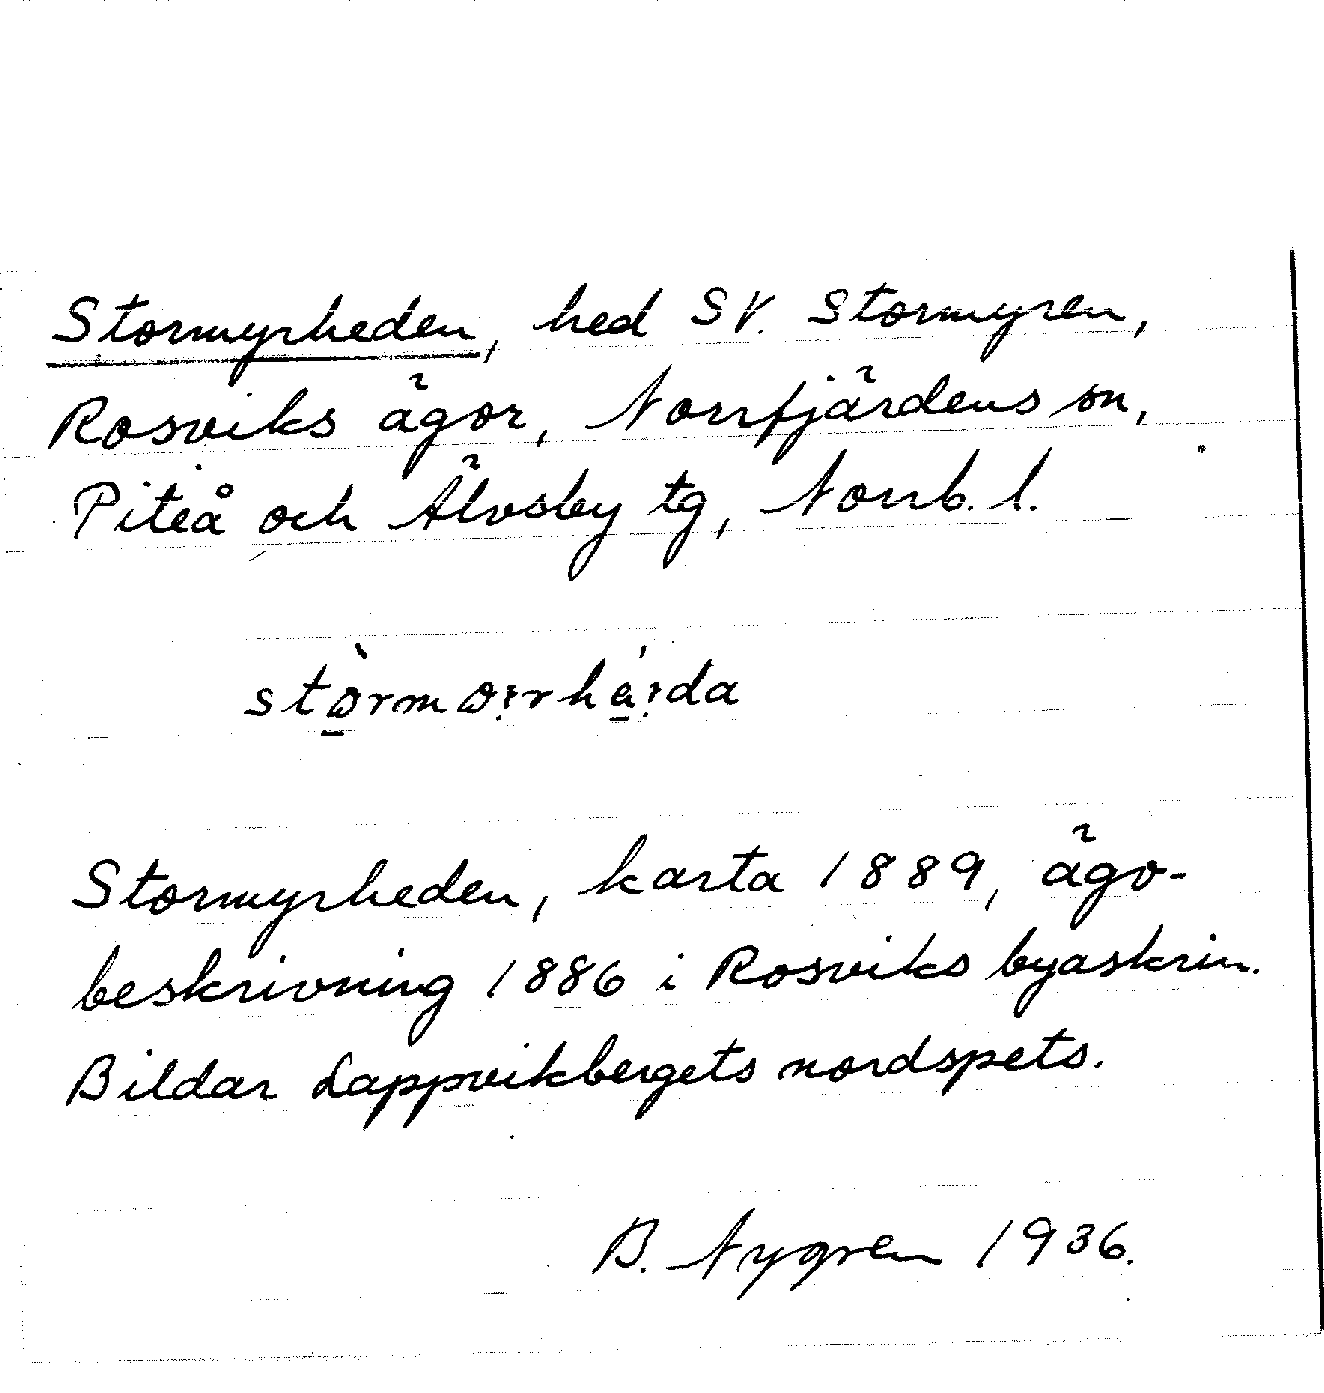 Stormyrheden, hed SV. Stormyren,
Rosviks ägor, Norrfjärdens sn,
Piteå och Älvsby tg, Norrb. l.
stòrmo:rhá:da
Stormyrheden, karta 1889, ägo-
beskrivning 1886 i Rosviks byaskrin.
Bildar Lappvikbergets nordspets.
B. Nygren 1936.